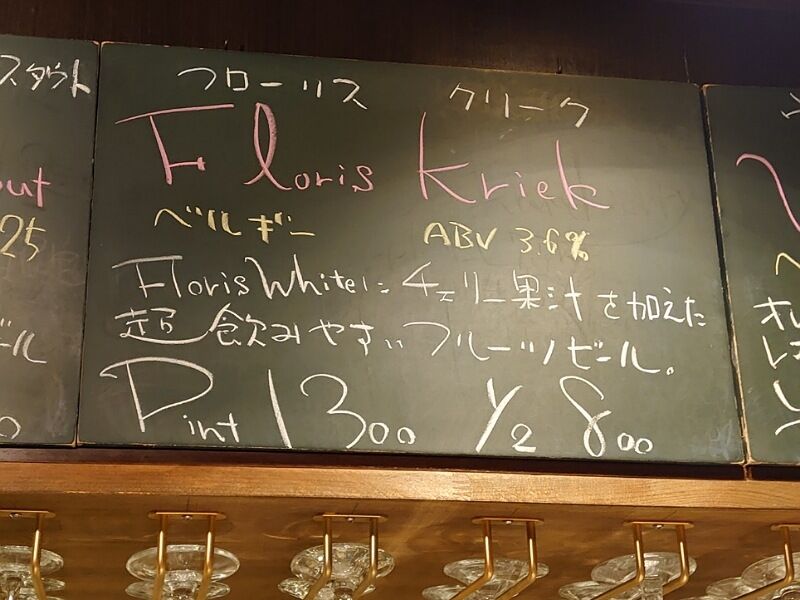 スタウト
out
25
ール
0
フローリス クリーク
Floris Kriek
ベルギー ABV 3.6%
Floris Whiteに チェリー果汁 を加えた
超 飲みやすい フルーツビール。
Pint 1300 1/2 800
オレ